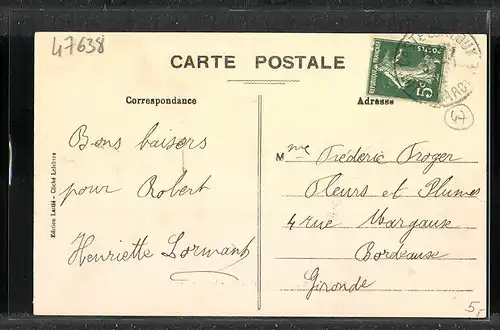 47638
CARTE POSTALE
Correspondance
Adresse
REPUBLIQUE FRANÇAISE
POSTES
5
47
Bons baisers
pour Robert
Henriette Lormant
Mme Frédéric Froger
Fleurs et Plumes
4 rue Margaux
Bordeaux
Gironde
Edition Lastié - Cliché Lefebvre
5